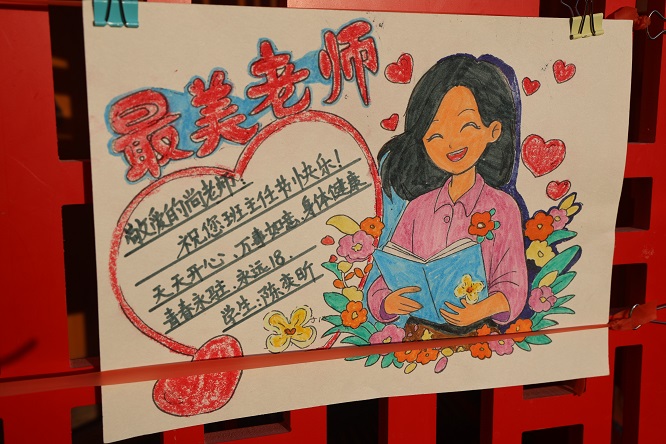 最美老师
敬爱的尚老师：
祝您班主任节快乐！
天天开心、万事如意、身体健康
青春永驻、永远18.
学生：陈奕昕